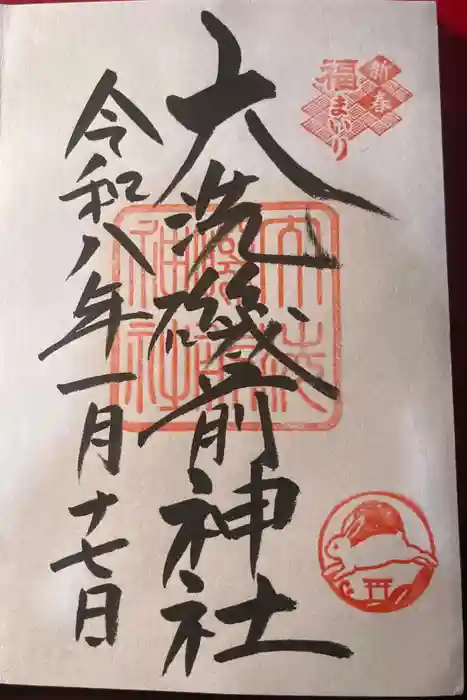 新春
福まいり
大洗磯前神社
大洗磯前神社
令和八年一月十七日